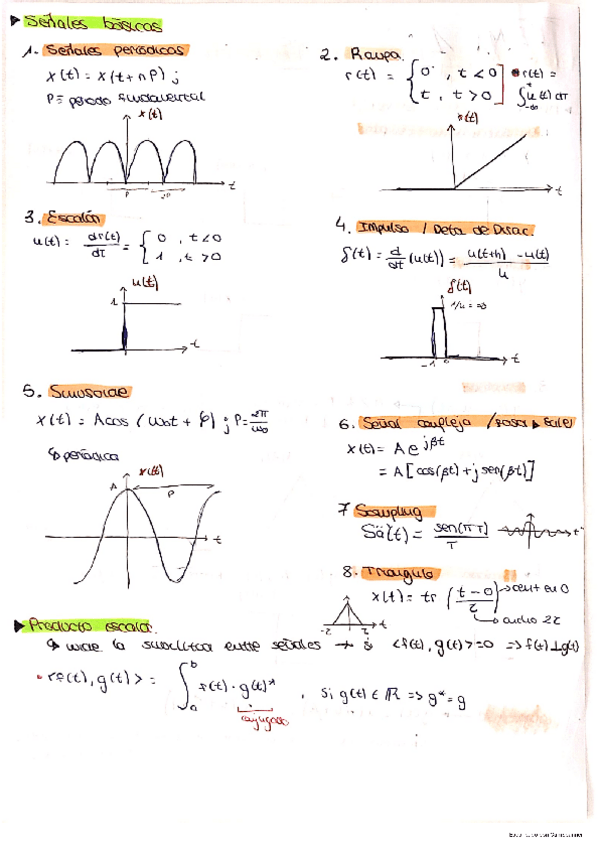 ▶ Señales básicas
1. Señales periódicas
x(t) = x(t + nP) ;
P ≡ periodo fundamental
x(t)
P
2P
t
2. Rampa
r(t) = { 0 , t < 0
t , t > 0
r(t) = ∫ u(t) dτ
-∞
r(t)
t
3. Escalón
u(t) = dr(t)/dt = { 0 , t < 0
1 , t > 0
u(t)
1
t
4. Impulso / Delta de Dirac.
δ(t) = d/dt (u(t)) = u(t+h) - u(t) / h
δ(t)
1/h = ∞
t
5. Sinusoide
x(t) = A cos (ω₀t + φ) ; P = 2π/ω₀
↳ periódica
x(t)
A
P
t
6. Señal compleja / fasor ▶ Euler
x(t) = A e^jβt
= A [cos(βt) + j sen(βt)]
7 Sampling
Sa(t) = sen(πT)/T
t
8. Triángulo
x(t) = tr (t-0/2) → cent en 0
↳ ancho 2τ
▶ Producto escalar
↳ mide la similitud entre señales → si <f(t), g(t)> = 0 => f(t) ⊥ g(t)
• <f(t), g(t)> = ∫ₐᵇ f(t) · g(t)* , si g(t) ∈ ℝ => g* = g
conjugado